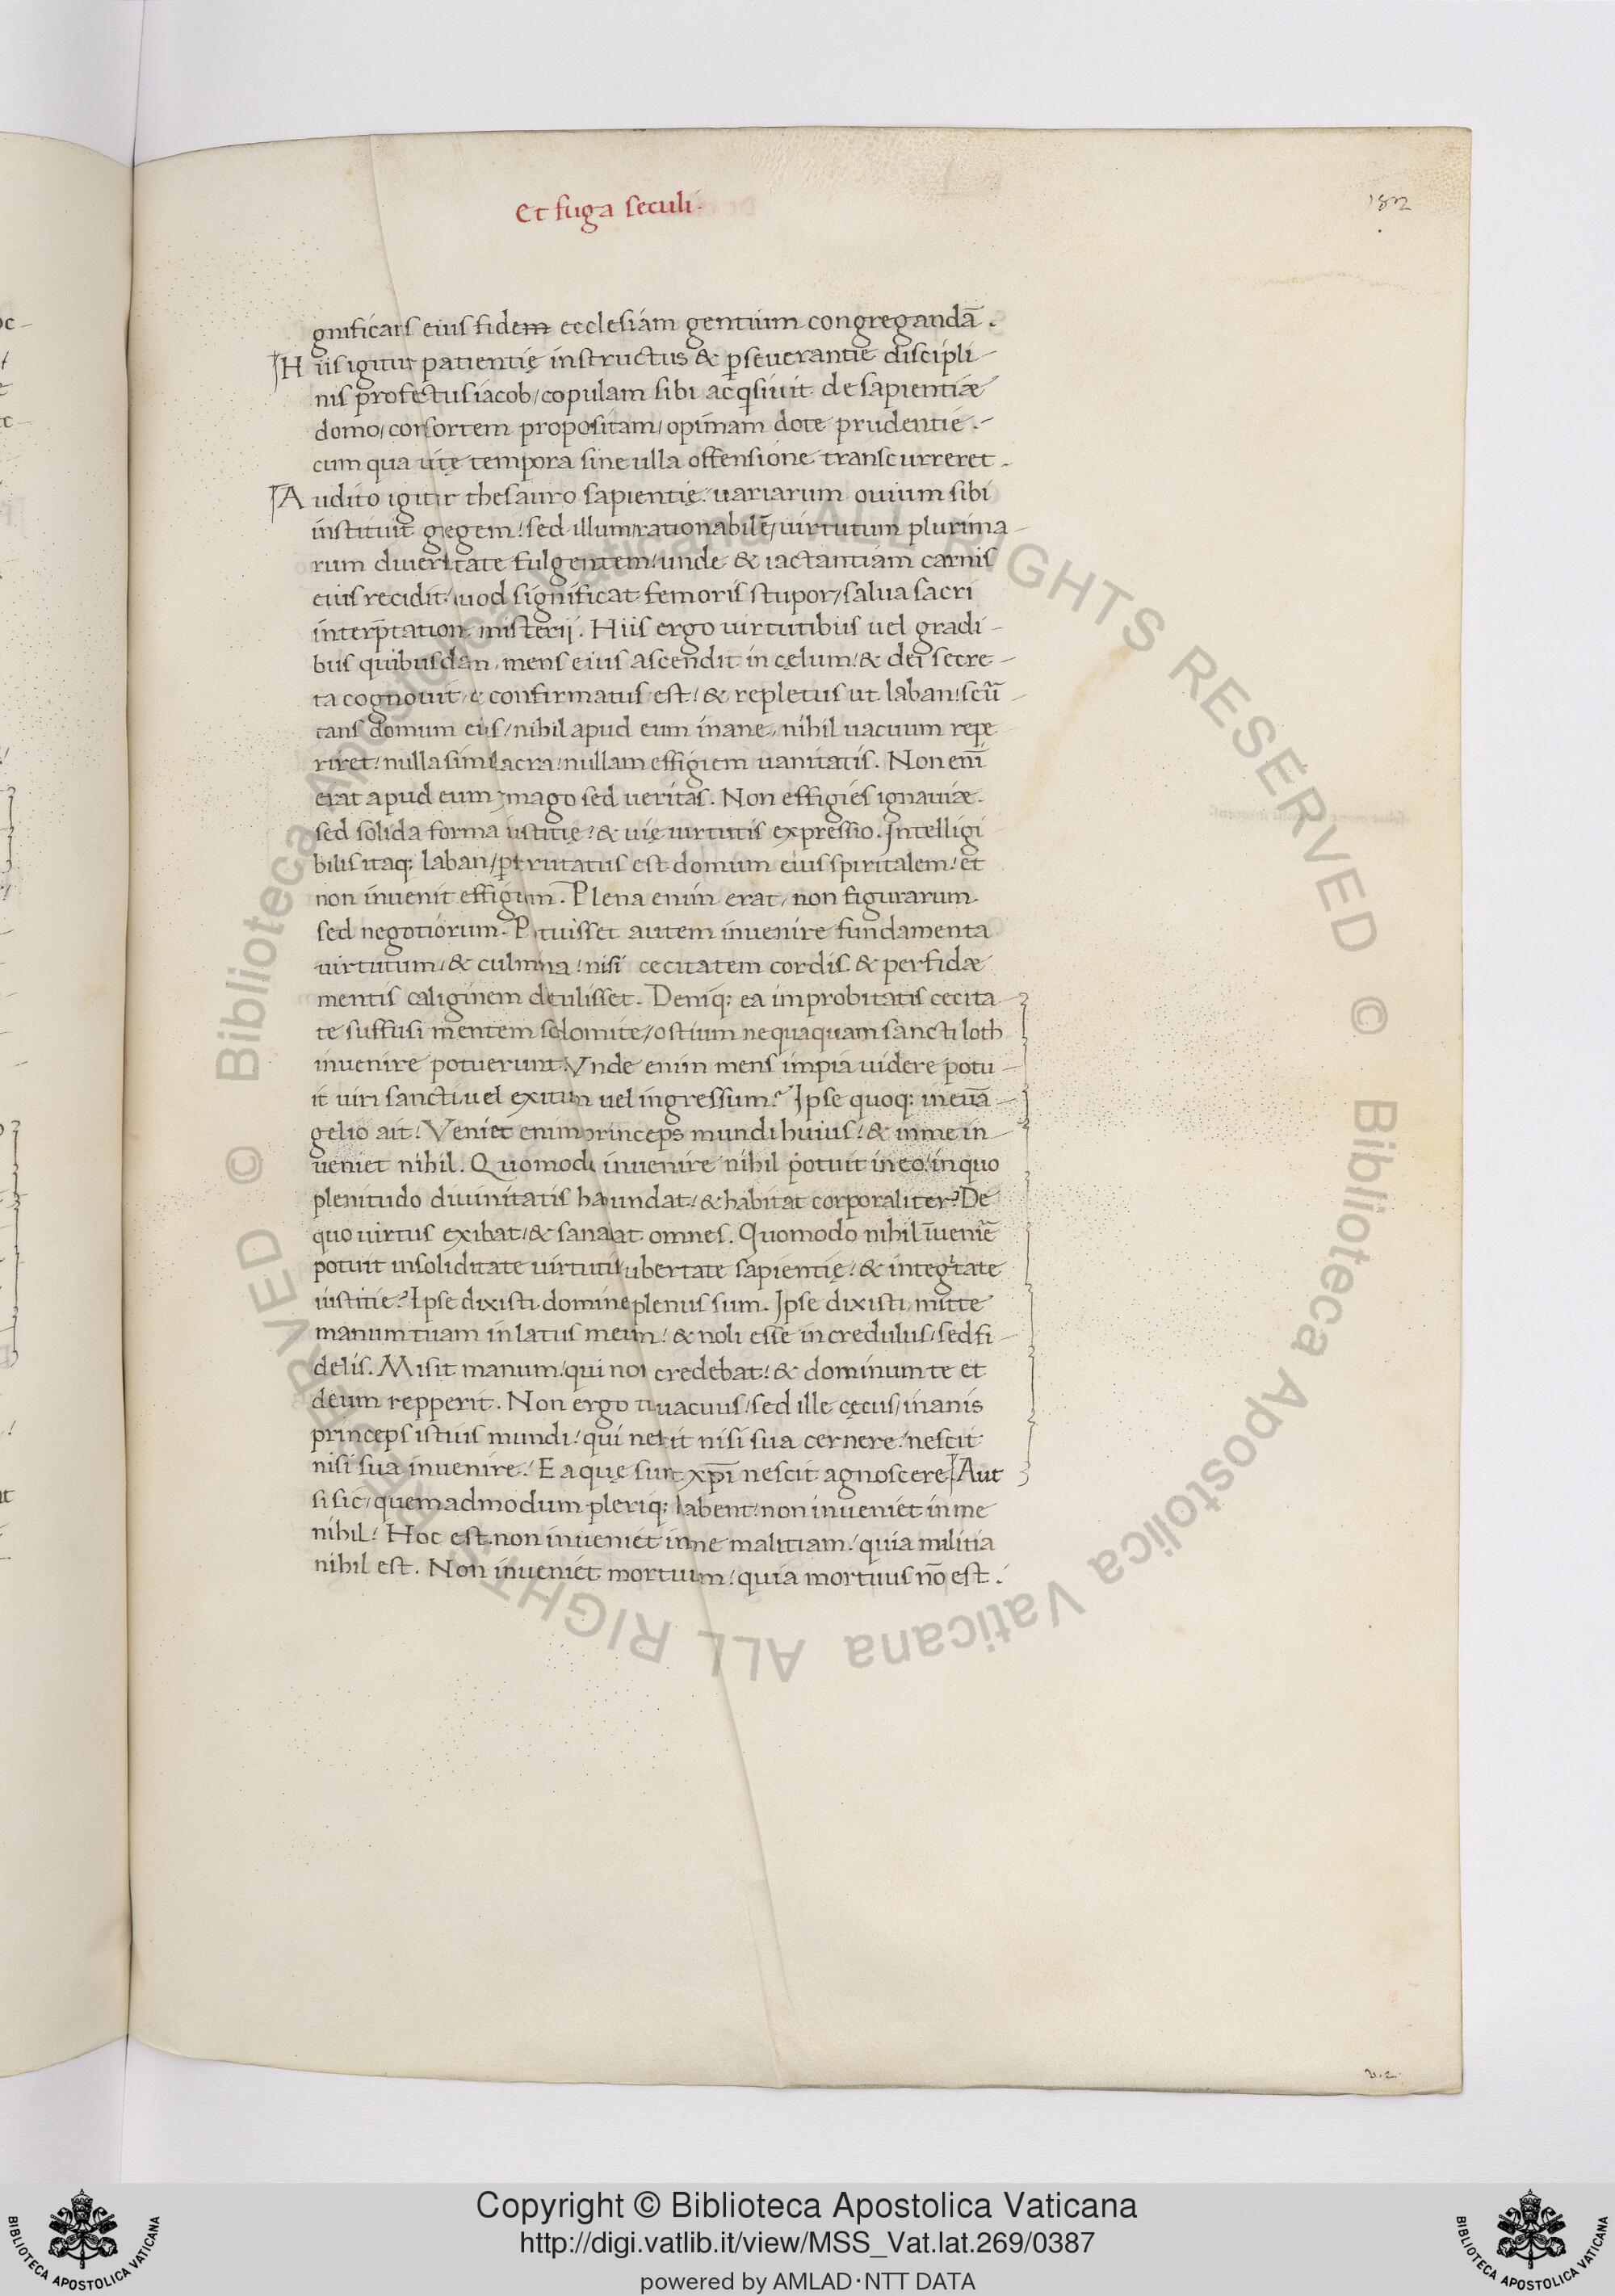 Et fuga seculi.
182
gnificans eius fidem ecclesiam gentium congregandā.
Hiis igitur patientię instructus & ꝑseuerantie discipli-
nis profectus iacob/copulam sibi acq̄siuit de sapientiæ
domo/consortem propositam/opimam dote prudentie.
cum qua uitę tempora sine ulla offensione transcurreret.
Audito igitur thesauro sapientię/uariarum ouium sibi
instituit gregem/sed illum rationabilē/uirtutum plurima-
rum diuersitate fulgentem/unde & iactantiam carnis
eius recidit/quod significat femoris stupor/salua sacri
interp̄tatione misterij. Hiis ergo uirtutibus uel gradi-
bus quibusdam mens eius ascendit in cęlum/& dei secre-
ta cognouit/& confirmatus est/& repletus ut laban/scrū-
tans domum eius/nihil apud eum inane/nihil uacuum repe
riret/nulla simulacra/nullam effigiem uanitatis. Non eni̅
erat apud eum ymago sed ueritas. Non effigies ignauiæ.
sed solida forma iustitię/& uię uirtutis expressio. Intelligi
bilis itaq; laban/ꝑscrutatus est domum eius spiritalem/et
non inuenit effigiem. Plena enim erat/non figurarum
sed negotiorum. Potuisset autem inuenire fundamenta
uirtutum/& culmina/nisi cecitatem cordis & perfidæ
mentis caliginem detulisset. Deniq; ea improbitatis cecita-
te suffusi mentem sodomite/ostium nequaquam sancti loth
inuenire potuerunt. Vnde enim mens impia uidere potu-
it uiri sancti uel exitum uel ingressum? Ipse quoq; in euā-
gelio ait/Veniet enim princeps mundi huius/& in me in-
ueniet nihil. Quomodo inuenire nihil potuit in eo/in quo
plenitudo diuinitatis habundat/& habitat corporaliter? De
quo uirtus exibat/& sanabat omnes. Quomodo nihil īuenir̄e
potuit in soliditate uirtutis/ubertate sapientię/& integritate
iustitie? Ipse dixisti domine plenus sum. Ipse dixisti mitte
manum tuam in latus meum/& noli esse incredulus/sed fi-
delis. Misit manum/qui non credebat/& dominum te et
deum repperit. Non ergo tu uacuus/sed ille cęcus/inanis
princeps istius mundi/qui nescit nisi sua cernere/nescit
nisi sua inuenire/Ea quę sunt xp̄i nescit agnoscere. Aut
si sic/quemadmodum pleriq; habent/non inueniet in me
nihil/Hoc est non inueniet in me malitiam/quia militia
nihil est. Non inueniet mortuum/quia mortuus nō est.
Copyright © Biblioteca Apostolica Vaticana
http://digi.vatlib.it/view/MSS_Vat.lat.269/0387
powered by AMLAD·NTT DATA
BIBLIOTECA APOSTOLICA VATICANA
BIBLIOTECA APOSTOLICA VATICANA
© Biblioteca Apostolica Vaticana ALL RIGHTS RESERVED © Biblioteca Apostolica Vaticana ALL RIGHTS RESERVED